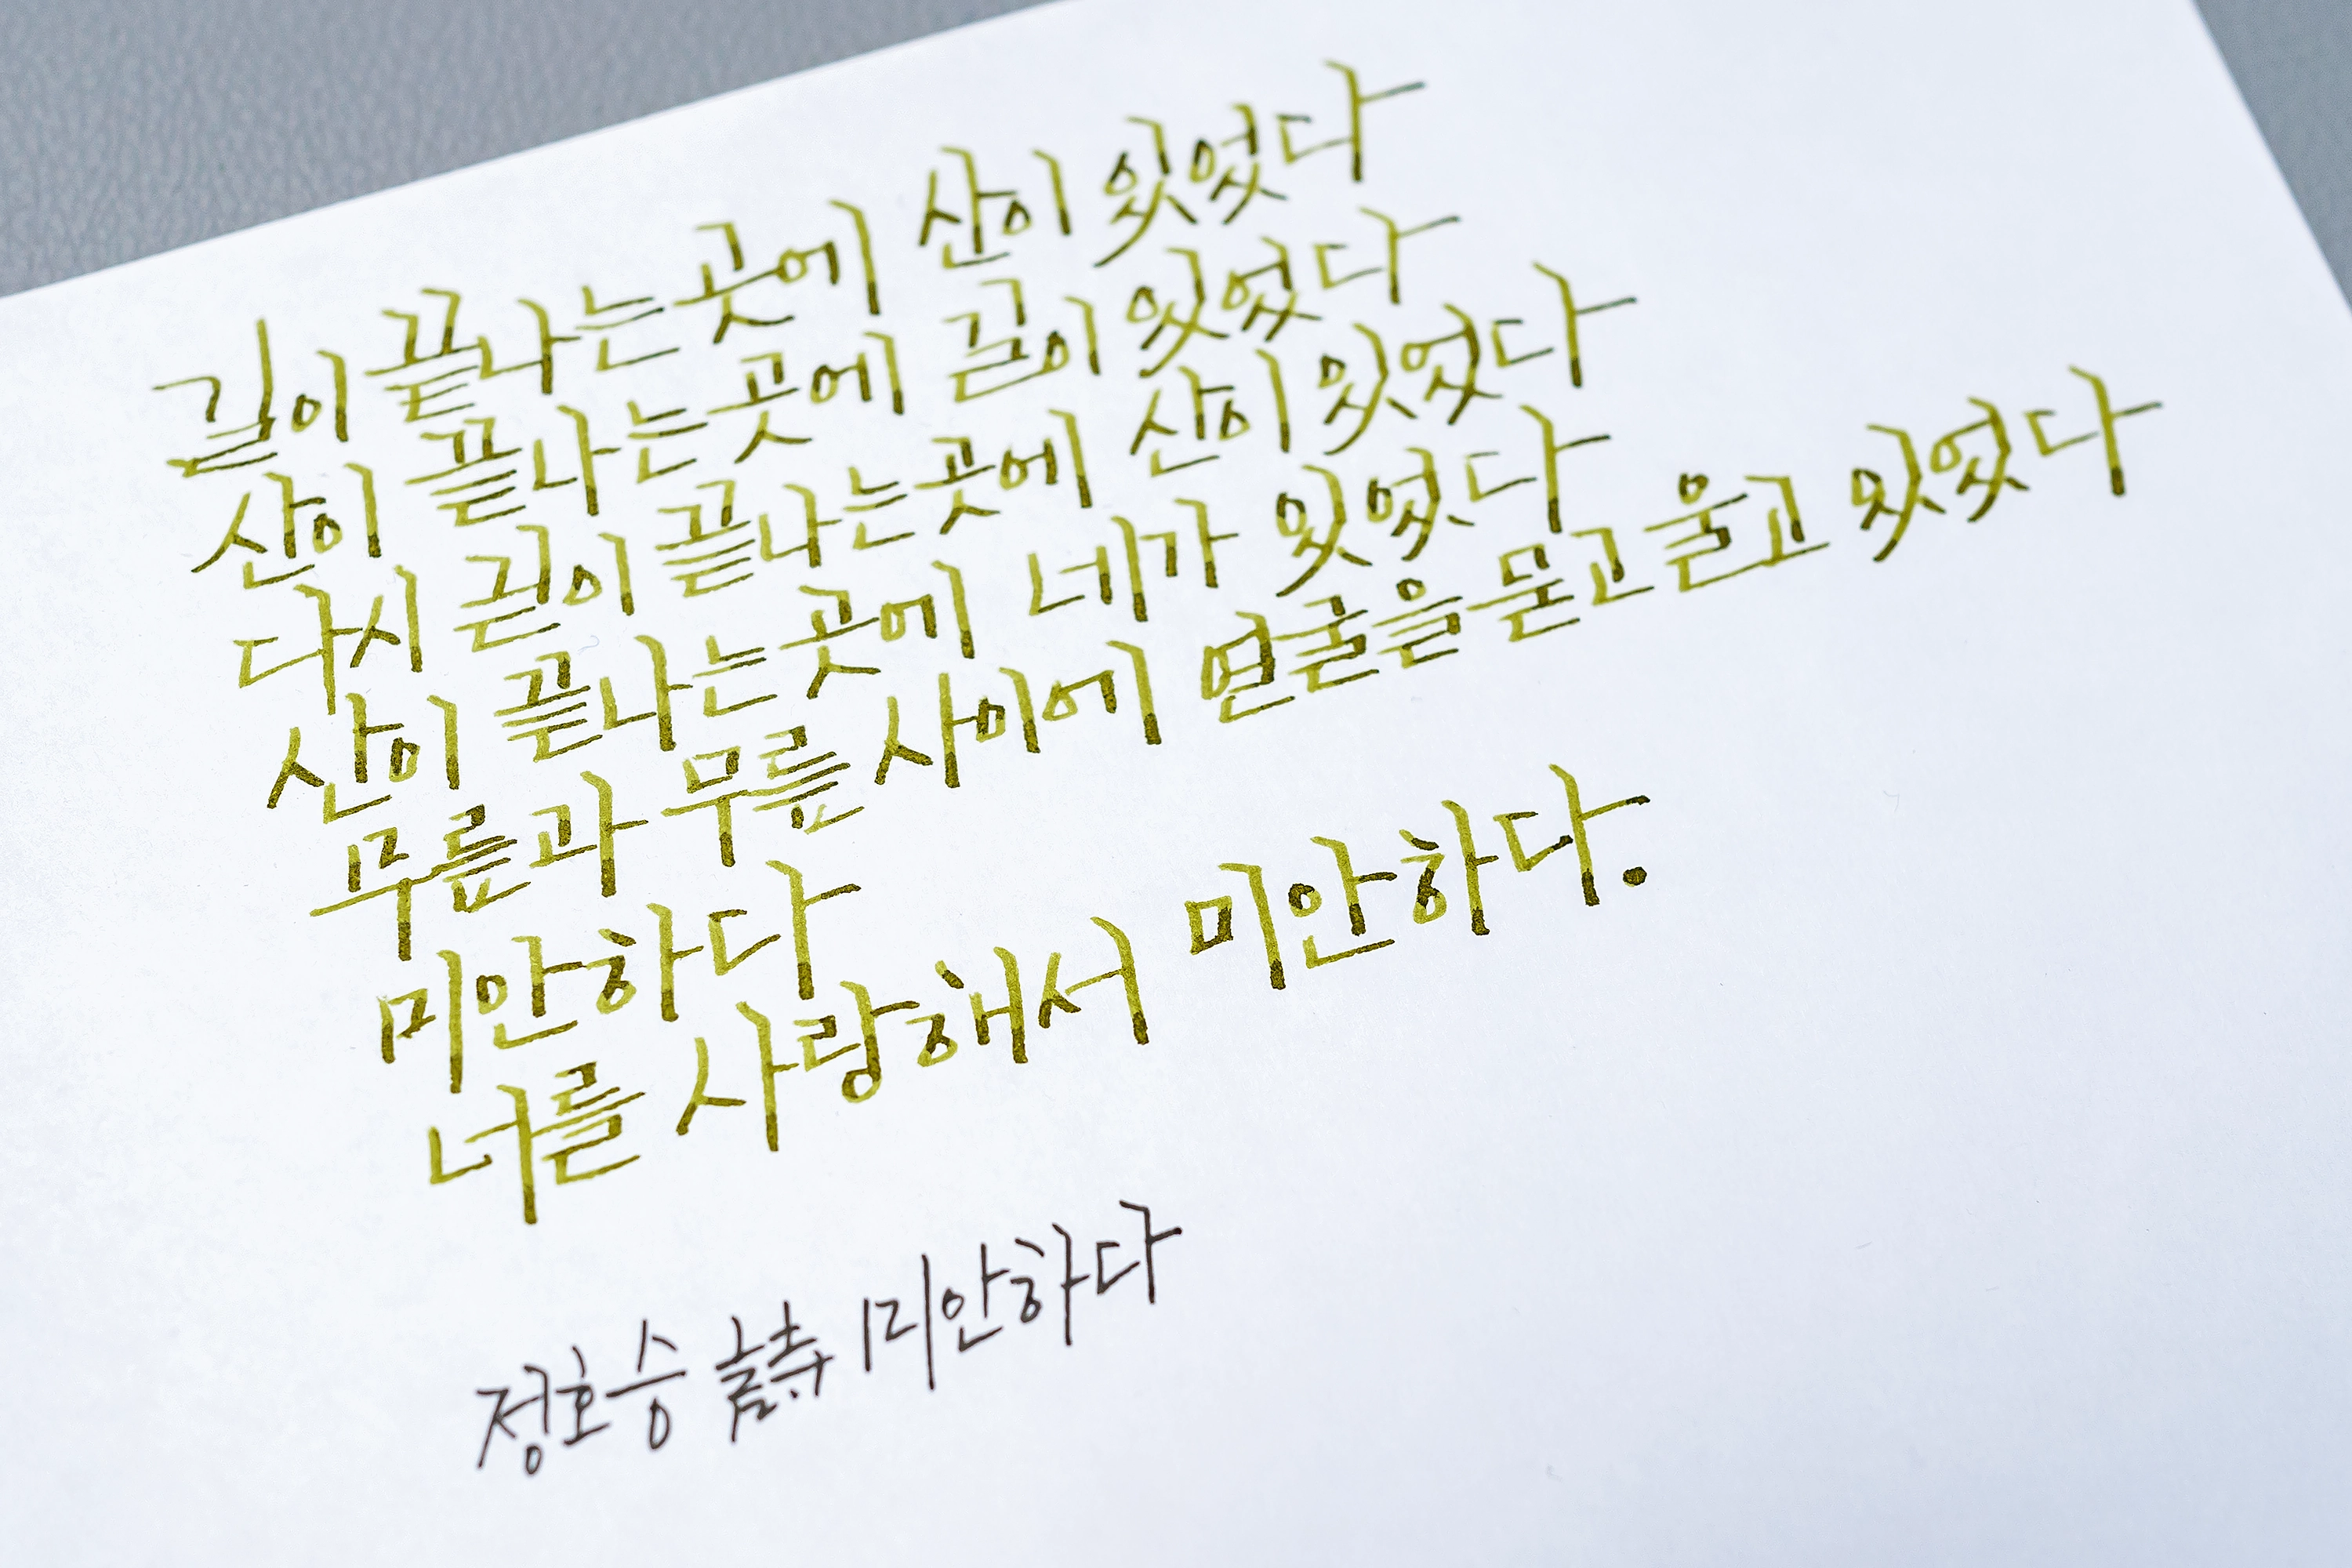 길이 끝나는 곳에 산이 있었다
산이 끝나는 곳에 길이 있었다
다시 길이 끝나는 곳에 산이 있었다
산이 끝나는 곳에 네가 있었다
무릎과 무릎 사이에 얼굴을 묻고 울고 있었다
미안하다
너를 사랑해서 미안하다.
정호승 詩 미안하다